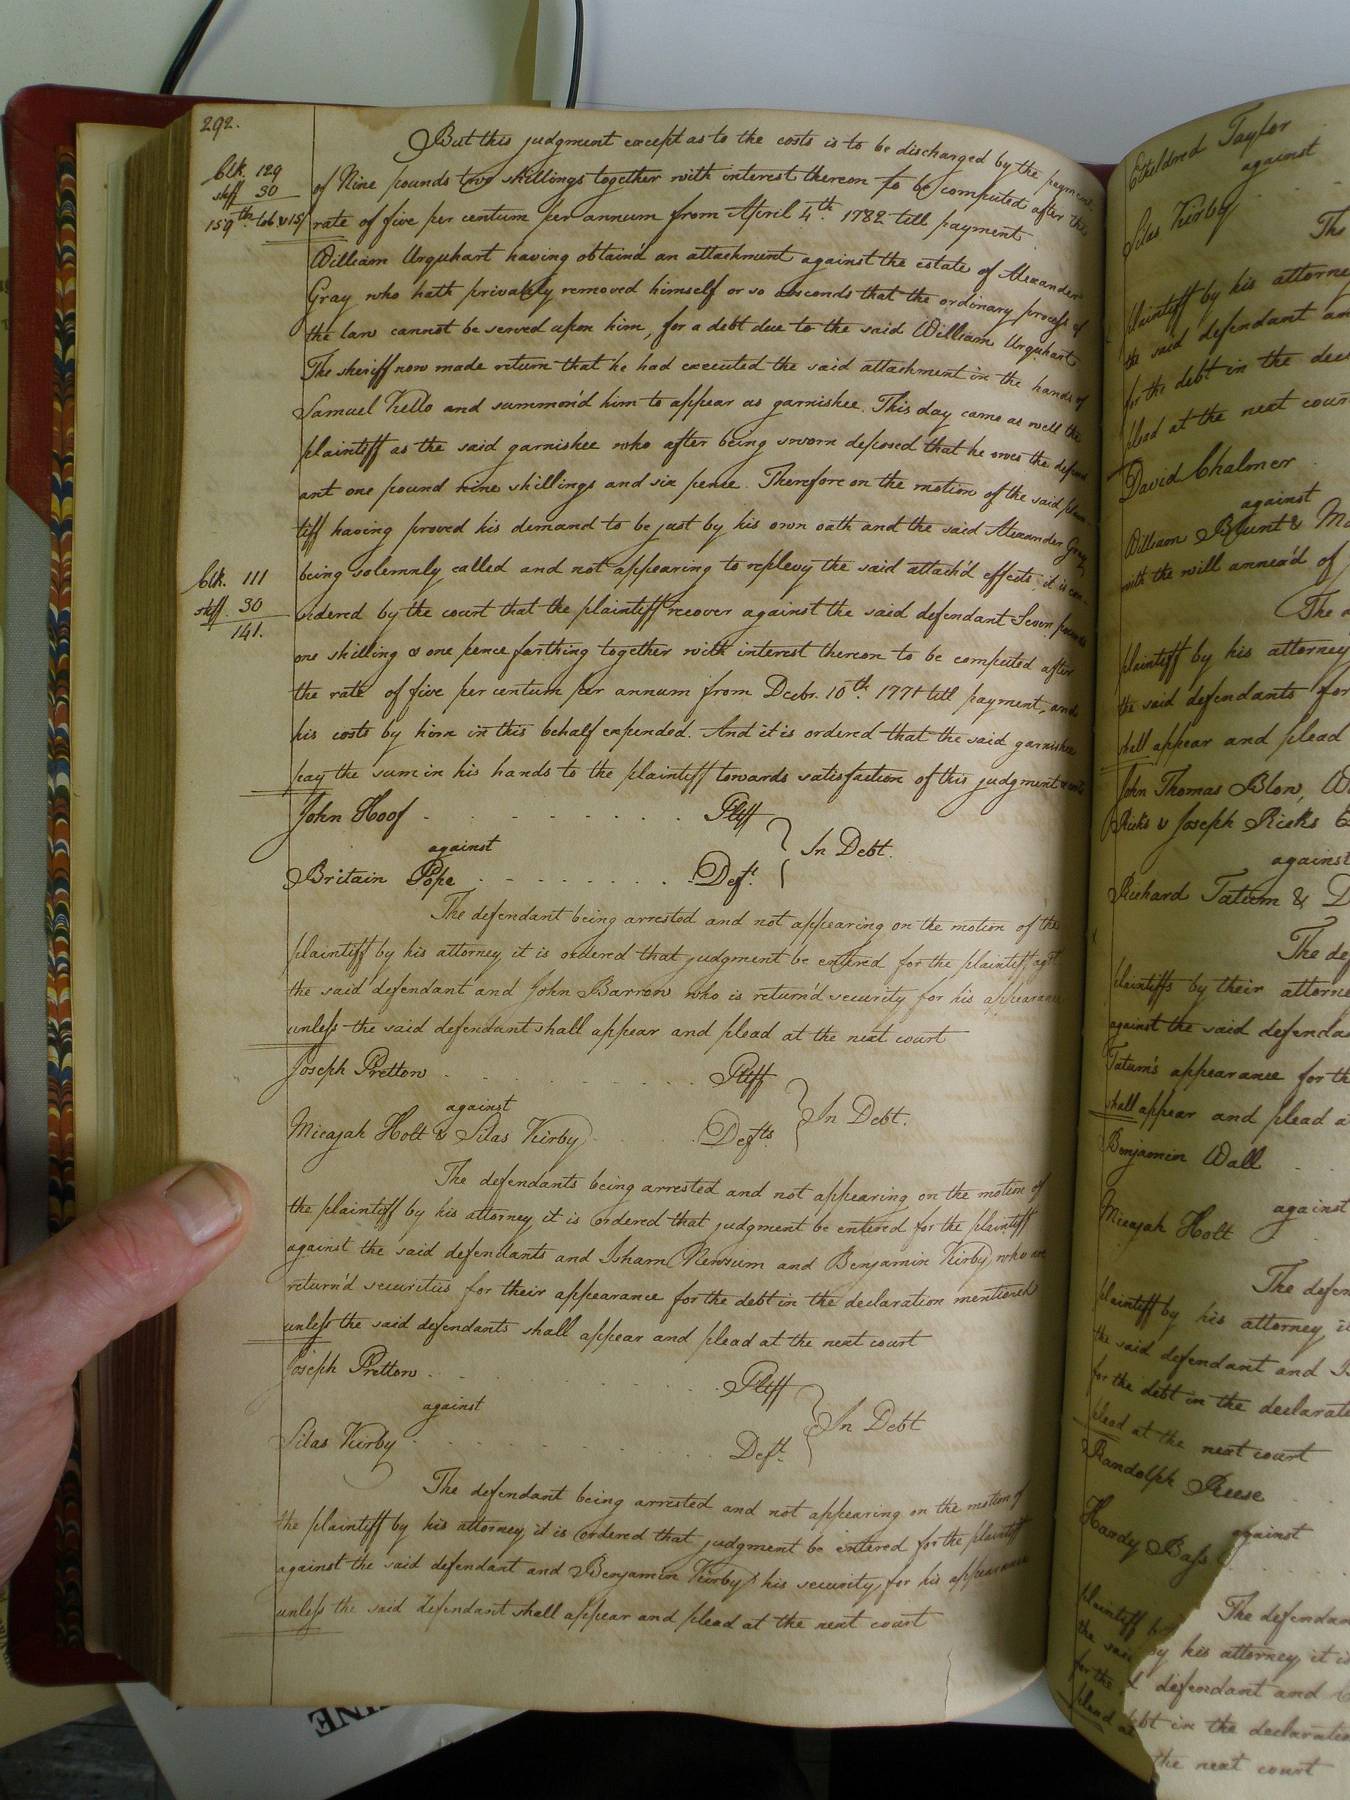 292.
But this judgment except as to the costs is to be discharged by the payment
Clk. 129
of Nine pounds two shillings together with interest thereon to be computed after the
shff 30
159 th. tob. & 15/
rate of five per centum per annum from April 4th. 1782 till payment
William Urquhart having obtain'd an attachment against the estate of Alexander
Gray who hath privately removed himself or so absconds that the ordinary process of
the law cannot be served upon him, for a debt due to the said William Urquhart
The sheriff now made return that he had executed the said attachment in the hands of
Samuel Kello and summon'd him to appear as garnishee. This day came as well the
plaintiff as the said garnishee who after being sworn deposed that he owes the defend
ant one pound nine shillings and six pence. Therefore on the motion of the said plain
tiff having proved his demand to be just by his own oath and the said Alexander Gray
Clk. 111
being solemnly called and not appearing to replevy the said attach'd effects, it is con-
shff. 30
141.
sidered by the court that the plaintiff recover against the said defendant Seven pounds
one shilling & one pence farthing together with interest thereon to be computed after
the rate of five per centum per annum from Decbr. 10th. 1771 till payment, and
his costs by him in this behalf expended. And it is ordered that the said garnishee
pay the sum in his hands to the plaintiff towards satisfaction of this judgment & costs
John Hoof Pltff
against In Debt.
Britain Pope Deft.
The defendant being arrested and not appearing on the motion of the
plaintiff by his attorney it is ordered that judgment be entered for the plaintiff agst
the said defendant and John Barrow who is return'd security for his appearance
unless the said defendant shall appear and plead at the next court
Joseph Pretlow Pltff
against In Debt.
Micajah Holt & Silas Kirby Defts
The defendants being arrested and not appearing on the motion of
the plaintiff by his attorney it is ordered that judgment be entered for the plaintiff
against the said defendants and Isham Newsum and Benjamin Kirby who are
return'd securities for their appearance for the debt in the declaration mentioned
unless the said defendants shall appear and plead at the next court
Joseph Pretlow Pltff
against In Debt
Silas Kirby Deft.
The defendant being arrested and not appearing on the motion of
the plaintiff by his attorney it is ordered that judgment be entered for the plaintiff
against the said defendant and Benjamin Kirby his security for his appearance
unless the said defendant shall appear and plead at the next court
Etheldred Taylor
against
Silas Kirby
The
plaintiff by his attorney
the said defendant an
for the debt in the decl
plead at the next cour
David Chalmer
against
William Blunt & Ma
with the will annex'd of
The d
plaintiff by his attorney
the said defendants for
shall appear and plead
John Thomas Blow, W
Ricks & Joseph Ricks E
against
Richard Tatum & D
The def
plaintiffs by their attorne
against the said defenda
Tatum's appearance for th
shall appear and plead a
Benjamin Wall
against
Micajah Holt
The defen
plaintiff by his attorney i
the said defendant and I
for the debt in the declarat
plead at the next court
Randolph Reese
against
Hardy Bass
The defendan
plaintiff by his attorney it i
the said defendant and
for the debt in the declaratio
plead at the next court